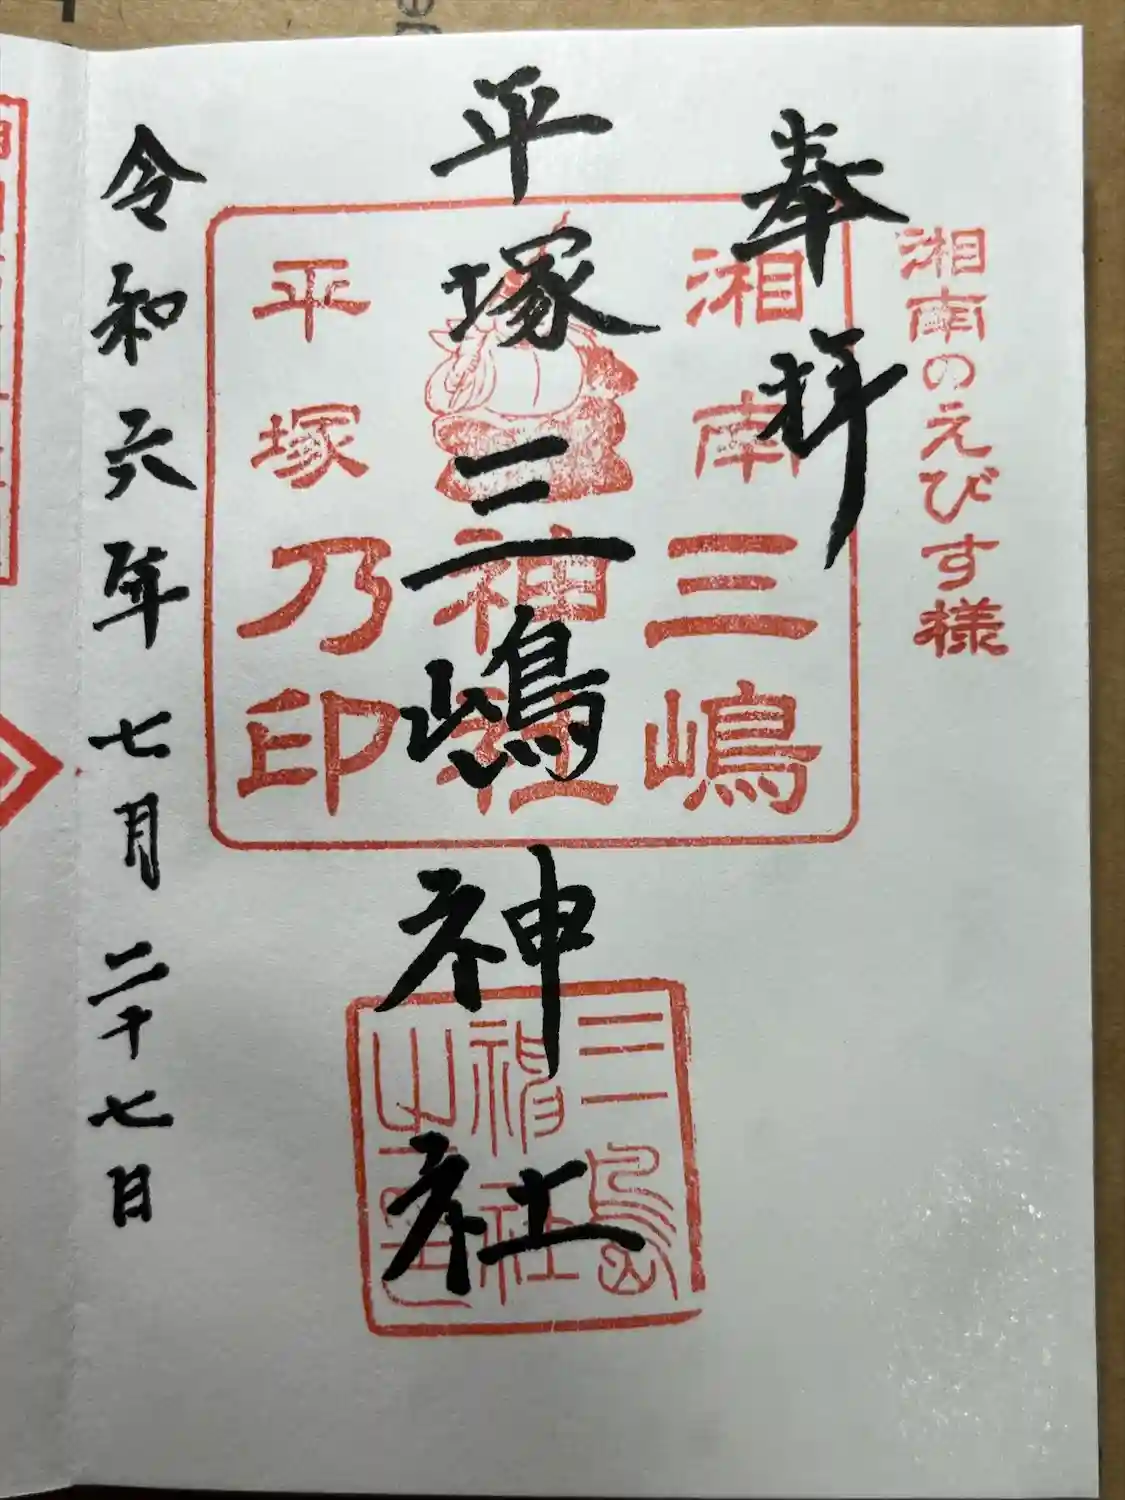 湘南のえびす様
奉拝
平塚三嶋神社
令和六年七月二十七日
湘南三嶋
神社
平塚乃印
三島
神社
之印